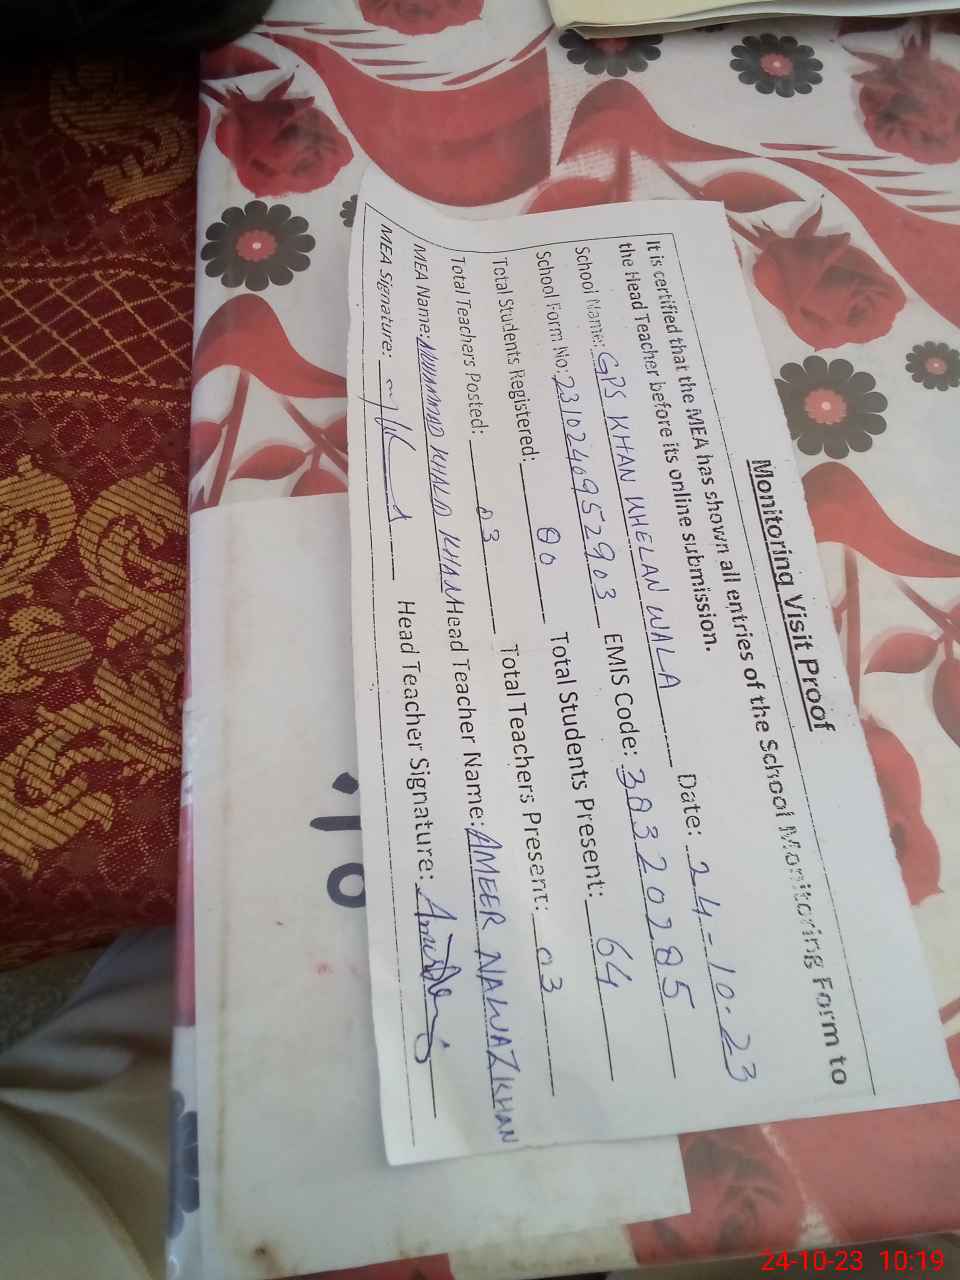 Monitoring Visit Proof
It is certified that the MEA has shown all entries of the School Monitoring Form to
the Head Teacher before its online submission.
School Name: GPS KHAN KHELAN WALA Date: 24-10-23
School Form No: 2310240952903 EMIS Code: 38320285
Total Students Registered: 80 Total Students Present: 64
Total Teachers Posted: 03 Total Teachers Present: 03
MEA Name: MUHAMMAD KHALID KHAN Head Teacher Name: AMEER NAWAZ KHAN
MEA Signature: Head Teacher Signature:
24-10-23 10:19